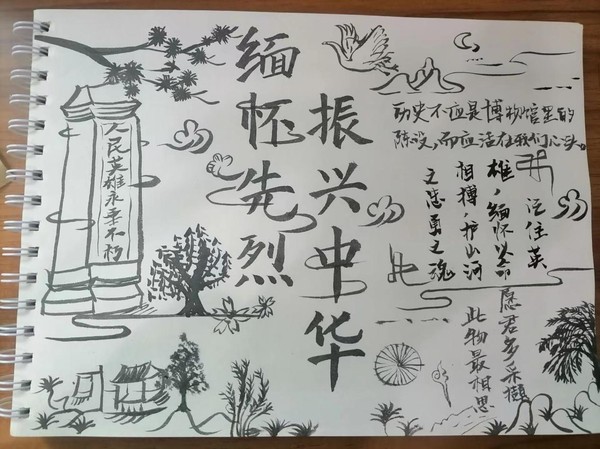 缅怀先烈
振兴中华
人民英雄永垂不朽
历史不应是博物馆里的
陈设,而应活在我们心头。
记住英
雄,缅怀以命
相搏,护山河
之忠勇之魂
愿君多采撷
此物最相思